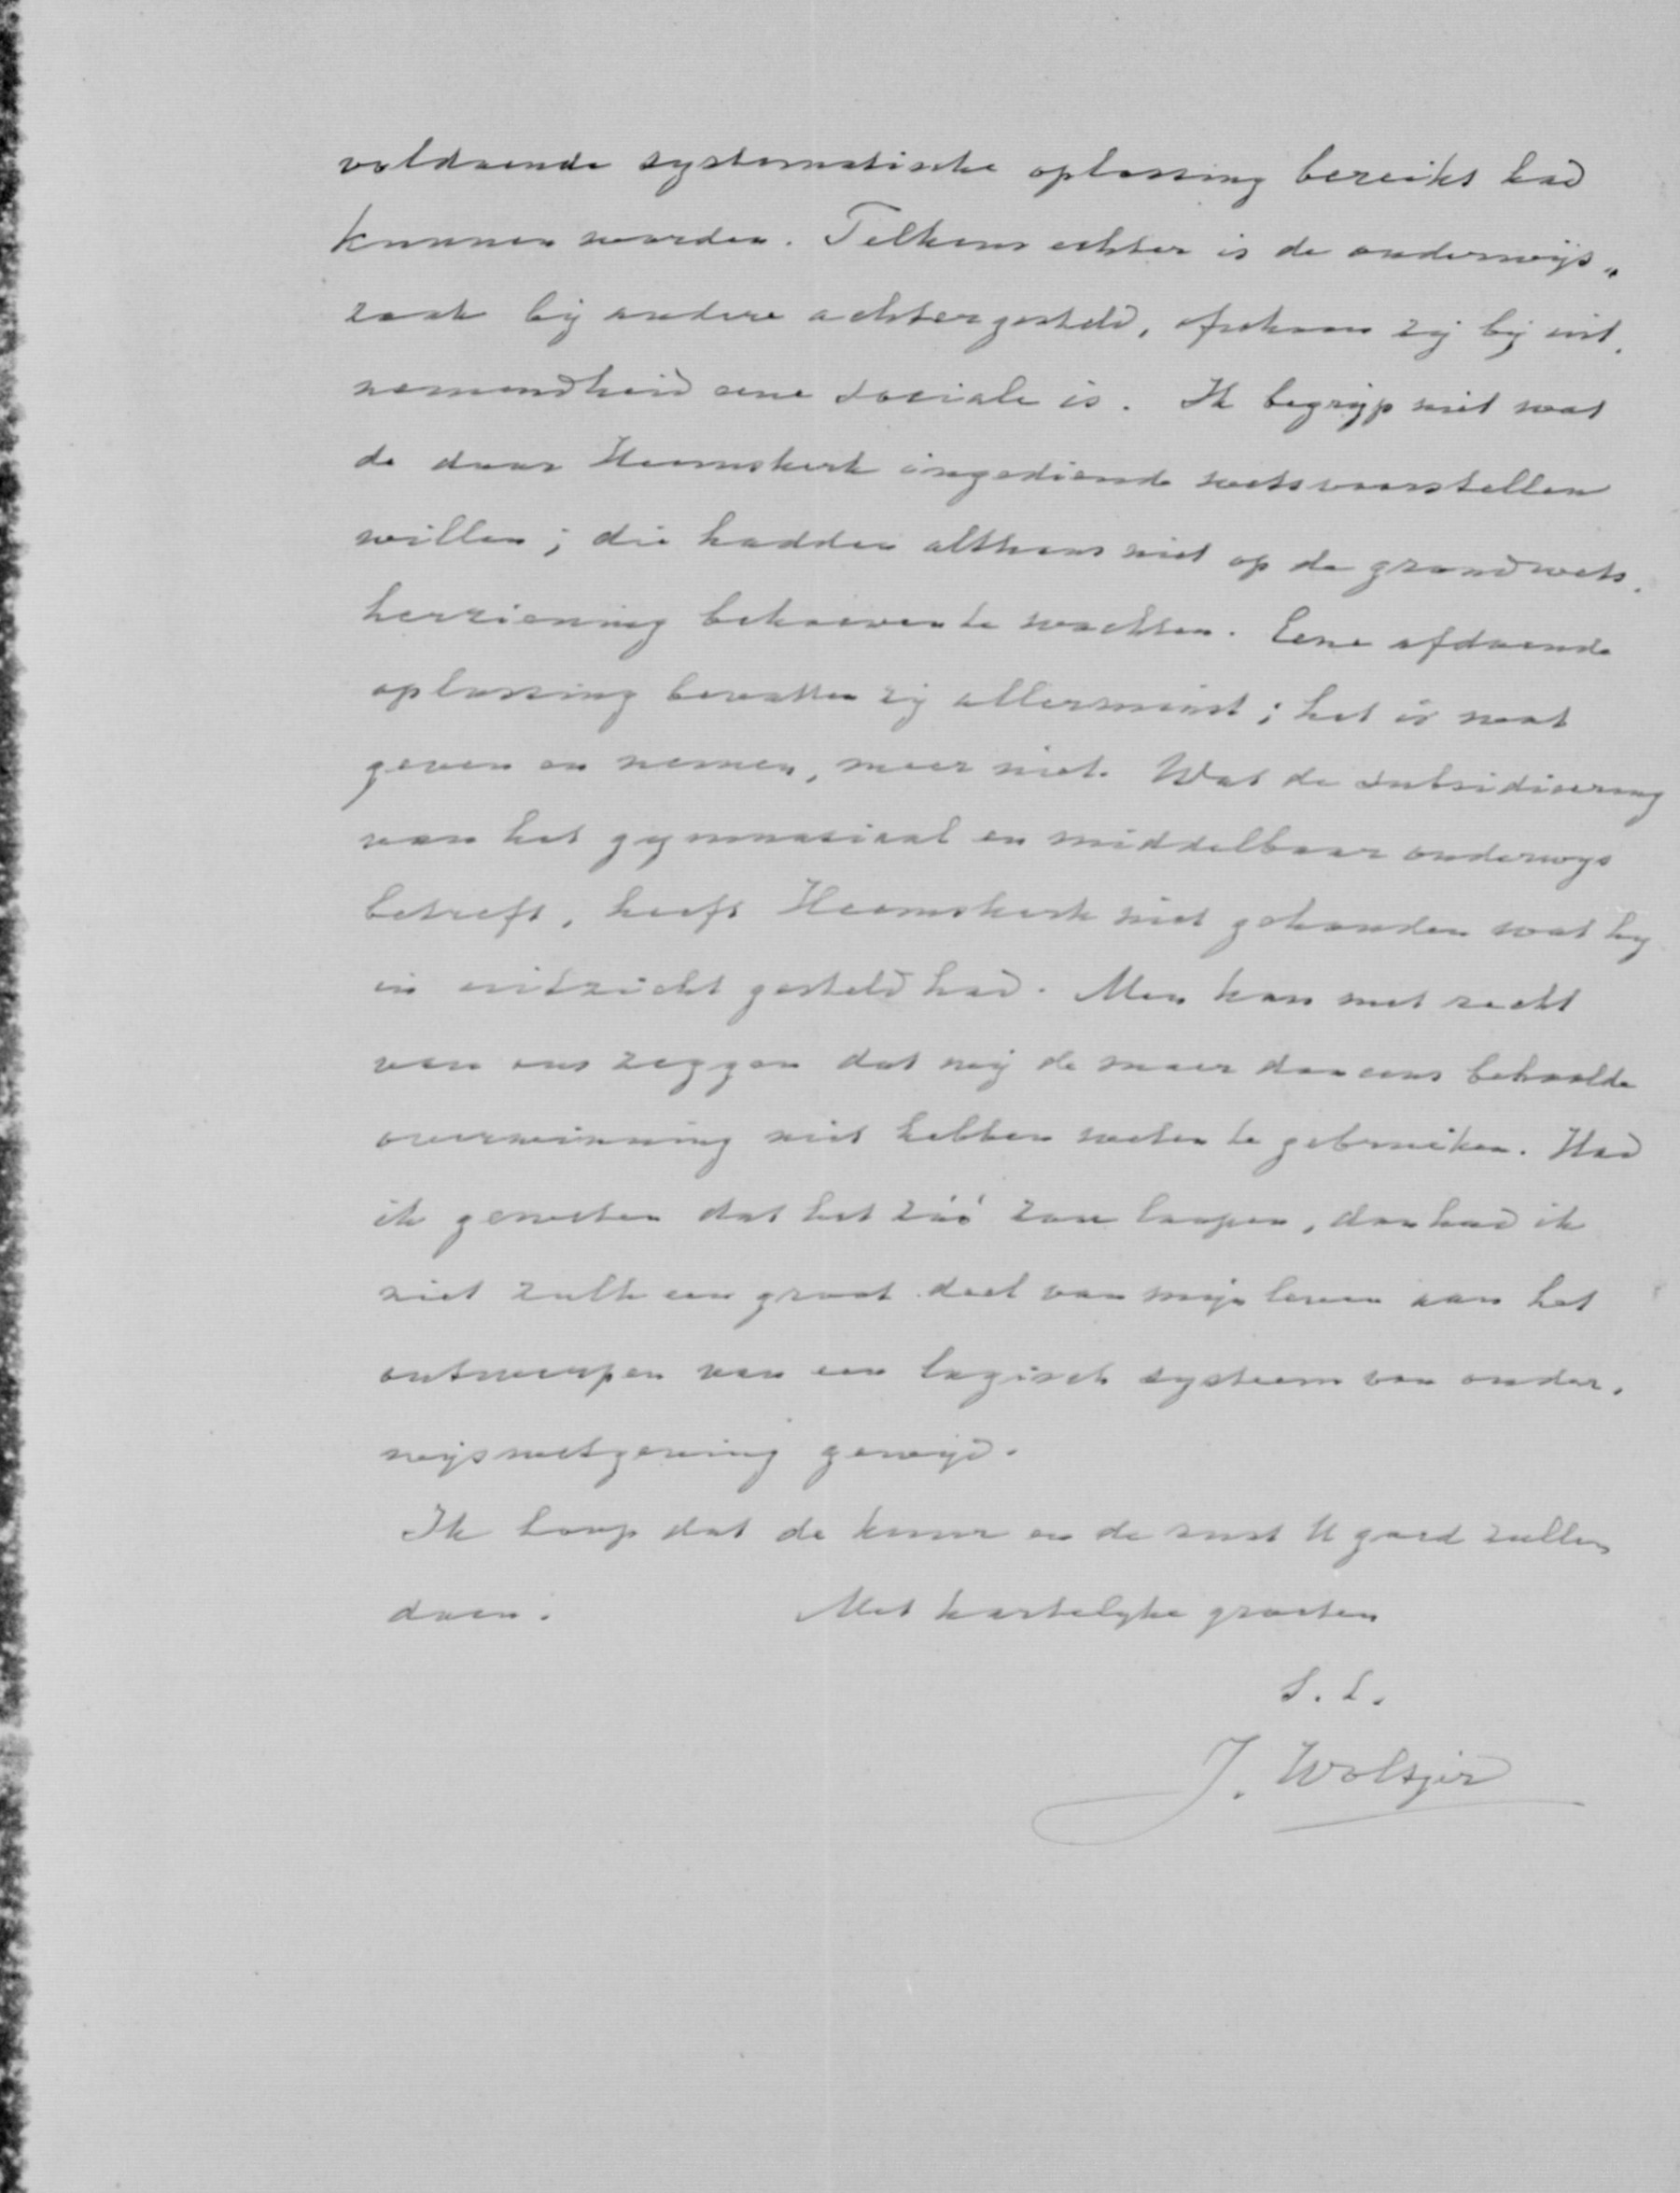 voldoende systematische oplossing bereikt had
kunnen worden. Telkens echter is de onderwijs„
zaak bij andere achtergesteld, ofschoon zij bij uit„
nemendheid eene sociale is. Ik begrijp niet wat
de door Heemskerk ingediende wetsvoorstellen
willen; die hadden althans niet op de grondwets„
herziening behoeven te wachten. Eene afdoende
oplossing bevatten zij allerminst; het is wat
geven en nemen, meer niet. Wat de subsidieering
van het gymnasiaal en middelbaar onderwijs
betreft, heeft Heemskerk niet gehouden wat hij
in uitzicht gesteld had. Men kan met recht
van ons zeggen dat wij de meer dan eens behaalde
overwinning niet hebben weten te gebruiken. Had
ik geweten dat het zóó zou loopen, dan had ik
niet zulk een groot deel van mijn leven aan het
ontwerpen van een logisch systeem van onder„
wijswetgeving gewijd.
Ik hoop dat de kuur en de rust U goed zullen
doen. Met hartelijke groeten
J. Woltjer